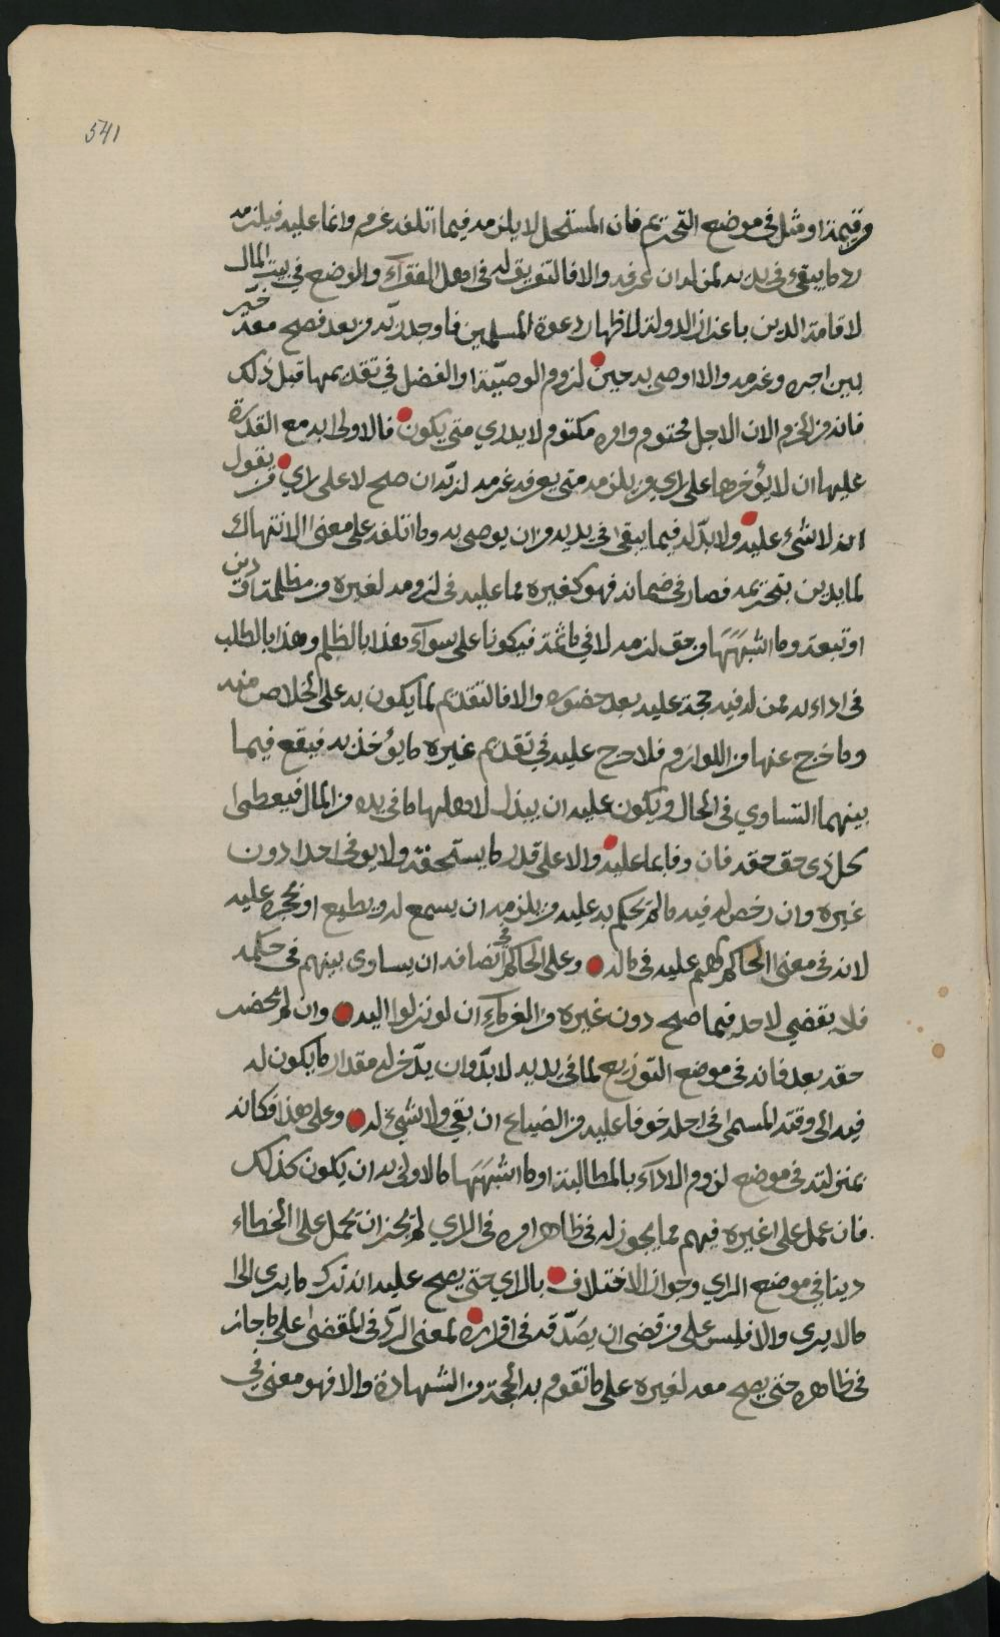 541
من قيمة او مثل في موضع التحريم فان المستحل لا يلزمه فيما اتلفه غرم وانما عليه فيلزمه
رد ما يبقى في يديه لمن له ان عرفه والا فالتفريق له في اهل الفقرآء والوضع في بيت المال
لاقامة الدين باعزاز الدولة لاظهار دعوة المسلمين فاوجد ربّه من بعد فصح معه خيّر
بين اجره وغرمه والا اوصى به حين لزوم الوصيّة او الفضل في تقديمها قبل ذلك
فانه من الحزم الان الاجل محتوم وامره مكتوم لا يدري متى يكون فالاولى به مع القدرة
عليها ان لا يؤخرها على راي من يلزمه متى يعرفه غرمه لربّه ان صح لا على راي من يقول
انه لا شيء عليه ولا بدّ له فيما يبقى في يديه من ان يوصى به وما اتلفه على معنى الانتهاك
لما يدين بتحريمه فصار في ضمانه فهو كغيره مما عليه في لزومه لغيره من مظلمة او دين
او تبعة وما اشبهَهَا من حق لزمه لا في مأثمة فيكونا على سوآء هذا بالظلم وهذا بالطلب
في اداء له ممن له فيه حجة عليه بعد حضوره والا فالتقديم لما يكون به على الخلاص منه
وما خرج عنها من اللوازم فلا حرج عليه في تقديم غيره ما يؤخذ به فيقع فيما
بينهما التساوي في الحال ويكون عليه ان يبذل لاهلها ما في يده من المال فيعطى
كل ذى حق حقه فان وفا بما عليه والا على قدر ما يستحقه ولا يوفى احدا دون
غيره وان رخص له فيه ما لم يحكم به عليه من يلزمه ان يسمع له ويطيع او يحجره عليه
لانه في معنى الحاكم عليه في ماله وعلى الحاكم في انصافه ان يساوى بينهم في حكمه
فلا يقضي لاحد فيما صح دون غيره من الغرمآء ان لو نزلوا اليه وان لم يحضر
حقه بعد فانه في موضع التوزيع لما في يديه لا بدّ وان يدّخر له مقدار ما يكون له
فيه الى وقته المسمى في اجله خوفا عليه من الضياع ان بقي ولا شيء له وعلى هذا فكانه
بمنزلته في موضع لزوم الادآء بالمطالبة او ما اشبهَهَا فالاولى به ان يكون كذلك
فان عمل على غيره فيهم مما يجوز له في ظاهر امره في الراي لم يجز ان يحمل على الخطاء
دينا في موضع الراي وجواز الاختلاف بالراي حتى يصح عليه انه ترك ما يرى الى
ما لا يرى والا فليس على من قضى ان يصَدّقه في اقراره لمعنى الردّ في المقضى على ما جاز
في ظاهره حتى يصح معه لغيره على ما تقوم به الحجة من الشهادة والا فهو معنى في